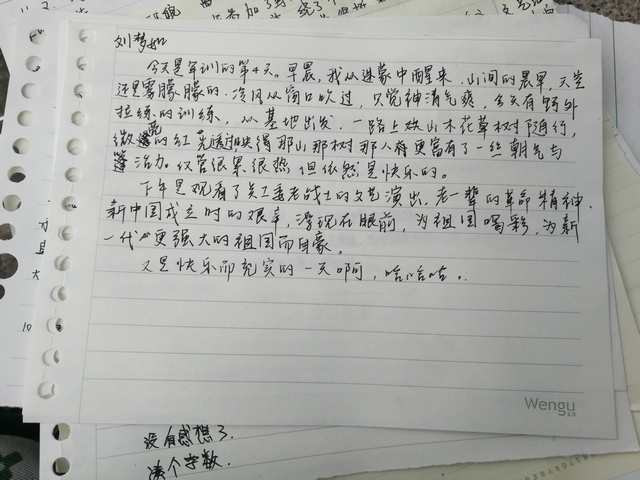 刘梦如
今天是军训的第4天。早晨,我从迷蒙中醒来,山间的晨早,天空
还是雾朦朦的。冷风从窗口吹过,只觉神清气爽,今天有野外
拉练的训练,从基地出发,一路上姓山木花草树随行,
微的红光透过映得那山那树那人都更富有了一丝朝气与
蓬活力。仅管很累很热,但依然是快乐的。
下午是观看了关工委老战士的文艺演出,老一辈的革命精神,
新中国成立时的艰辛,浮现在眼前,为祖国喝彩,为新
一代更强大的祖国而自豪。
又是快乐而充实的一天啊,哈哈哈。
Wengu
没有感想了.
凑个字数.